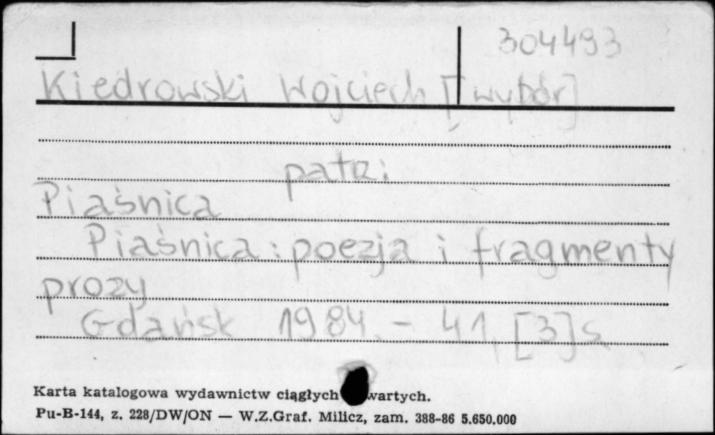 304493
Kiedrowski Wojciech [wybór]
patrz:
Piaśnica
Piaśnica : poezja i fragmenty
prozy
Gdańsk 1984. - 41, [3] s.
Karta katalogowa wydawnictw ciągłych wartych.
Pu-B-144, z. 228/DW/ON — W.Z.Graf. Milicz, zam. 388-86 5.650.000